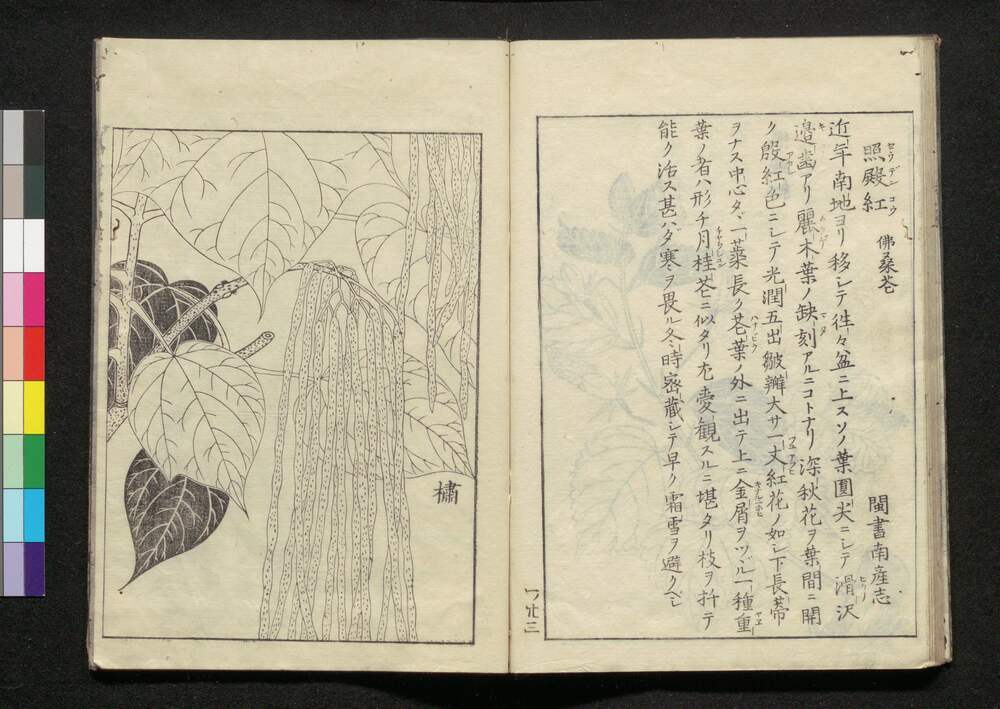 照殿紅 佛桑花 閩書南産志
セウデンコウ
近年南地ヨリ移シテ徃々盆ニ上スソノ葉圓尖ニシテ滑沢
邉ニ歯アリ麗木葉ノ缺刻アルニコトナリ深秋花ヲ葉間ニ開
ク殷紅色ニシテ光潤五出皺瓣大サ一丈紅花ノ如シ下長蔕
ヲナス中心タヾ一蘂長ク花葉ノ外ニ出テ上ニ金屑ヲツヾル一種重
葉ノ者ハ形チ月桂花ニ似タリ尤愛観スルニ堪タリ枝ヲ扦テ
能ク活ス甚ハダ寒ヲ畏ル冬時密蔵シテ早ク霜雪ヲ避クベシ
橚
一ノ廿三